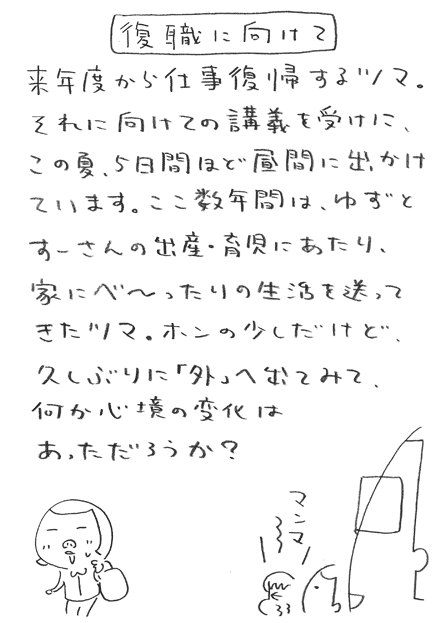 復職に向けて
来年度から仕事復帰するツマ。
それに向けての講義を受けに、
この夏、5日間ほど昼間に出かけ
ています。ここ数年間は、ゆずと
すーさんの出産・育児にあたり、
家にべ〜ったりの生活を送って
きたツマ。ホンの少しだけど、
久しぶりに「外」へ出てみて、
何か心境の変化は
あっただろうか?
マンマ